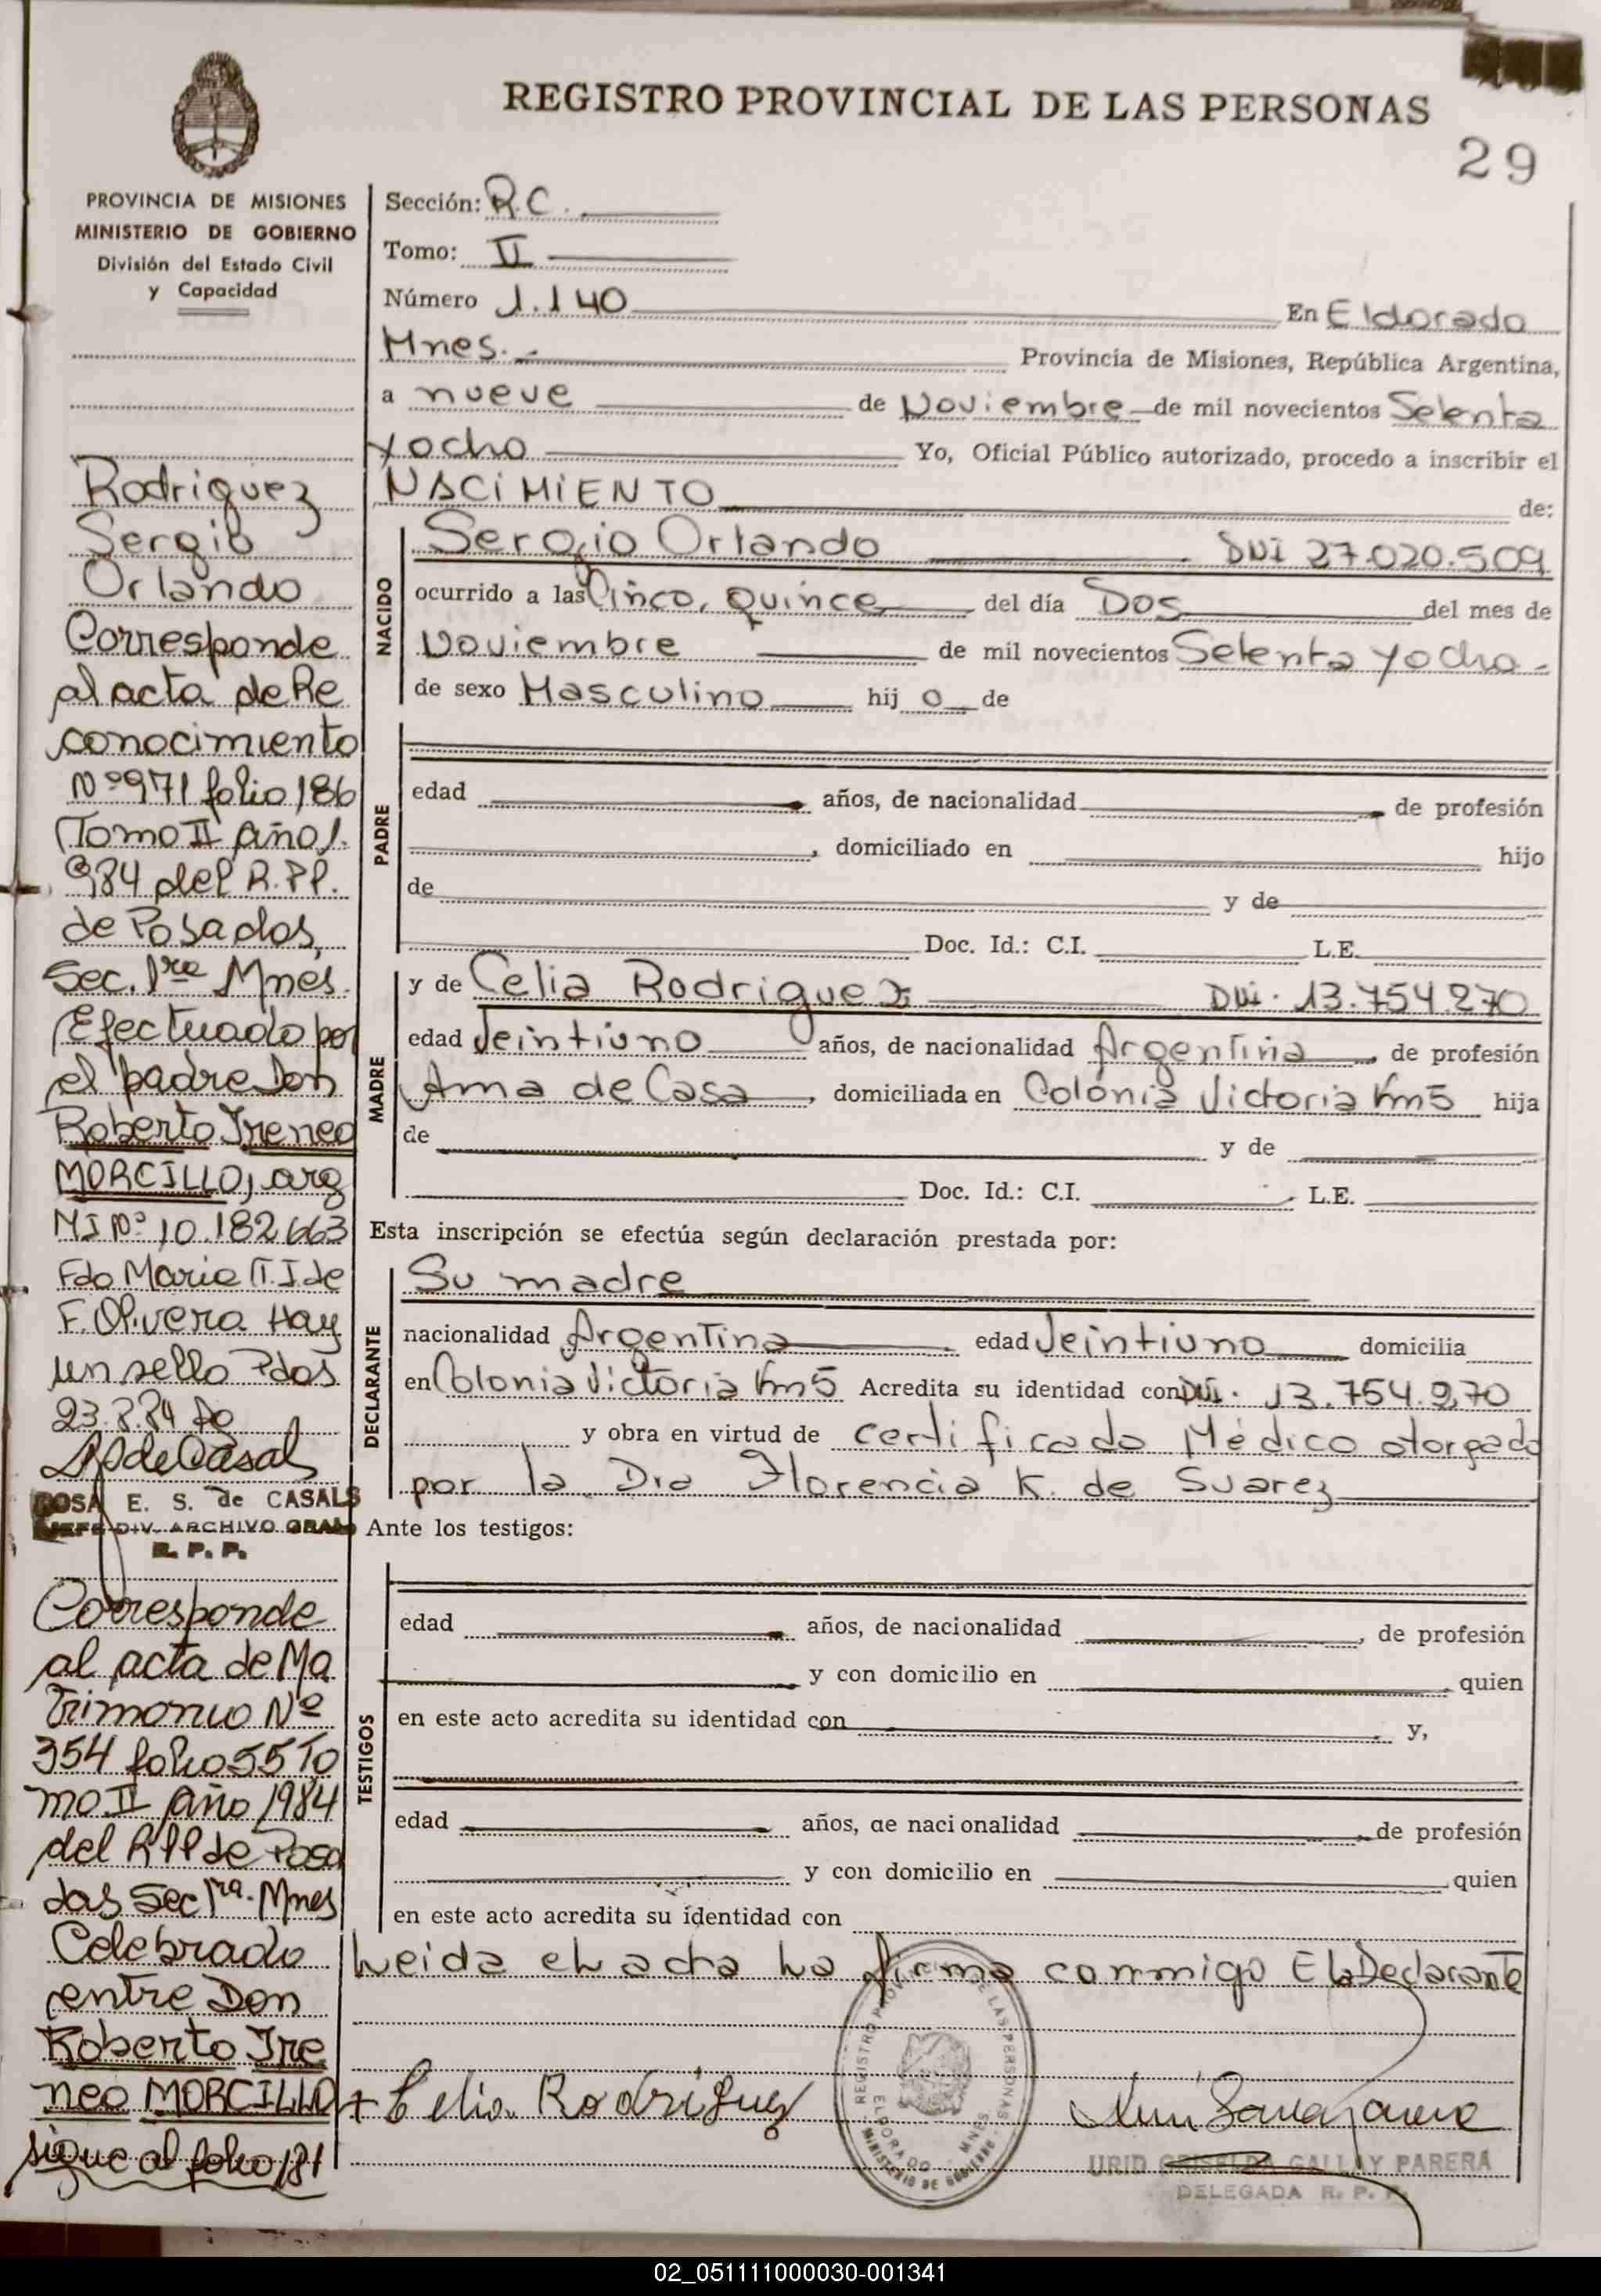 REGISTRO PROVINCIAL DE LAS PERSONAS
29
PROVINCIA DE MISIONES
MINISTERIO DE GOBIERNO
División del Estado Civil
y Capacidad
Rodriguez
Sergio
Orlando
Corresponde
al acta de Re
conocimiento
Nº 971 folio 186
Tomo II año 1.
984 del R.P.P.
de Posadas,
Sec. 1ra Mnes.
Efectuado por
el padre Don
Roberto Ireneo
MORCILLO, arg
MI Nº 10.182.663
Fdo Maria T. I de
F. Olivera Hay
un sello Pdas
23.8.84
ROSA E. S. de CASALS
JEFE DIV. ARCHIVO GRAL
R. P. P.
Corresponde
al acta de Ma
trimonio Nº
354 folio 55 To
mo II año 1984
del RPP de Posa
das Sec 1ra. Mnes
Celebrado
entre Don
Roberto Ire
neo MORCILLO
sigue al folio 181
Sección: R.C.
Tomo: II
Número 1.140 En Eldorado
Mnes. Provincia de Misiones, República Argentina,
a nueve de Noviembre de mil novecientos Setenta
yocho Yo, Oficial Público autorizado, procedo a inscribir el
NACIMIENTO de:
NACIDO
Sergio Orlando DNI 27.020.509
ocurrido a las Cinco, quince del día Dos del mes de
Noviembre de mil novecientos Setenta yocho
de sexo Masculino hij o de
PADRE
edad años, de nacionalidad de profesión
, domiciliado en hijo
de y de
Doc. Id.: C.I. L.E.
MADRE
y de Celia Rodriguez DNI. 13.754.270
edad Veintiuno años, de nacionalidad Argentina de profesión
Ama de Casa, domiciliada en Colonia Victoria Km5 hija
de y de
Doc. Id.: C.I. L.E.
Esta inscripción se efectúa según declaración prestada por:
DECLARANTE
Su madre
nacionalidad Argentina edad Veintiuno domicilia
en Colonia Victoria Km5 Acredita su identidad con DNI. 13.754.270
y obra en virtud de certificado Médico otorgado
por la Dra Florencia K. de Suarez
Ante los testigos:
TESTIGOS
edad años, de nacionalidad , de profesión
y con domicilio en , quien
en este acto acredita su identidad con y,
edad años, de nacionalidad de profesión
y con domicilio en , quien
en este acto acredita su identidad con
Leida el acta la firma conmigo El la Declarante
Celia Rodriguez
REGISTRO PROVINCIAL DE LAS PERSONAS
ELDORADO - MNES
MINISTERIO DE GOBIERNO
GALLAY PARERA
DELEGADA R. P. P.
02_051111000030-001341